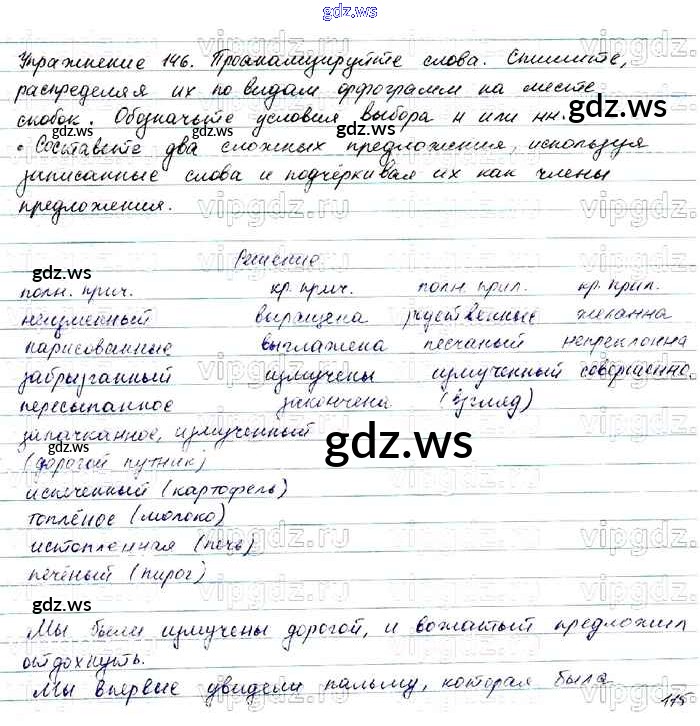 gdz.ws
Упражнение 146. Проанализируйте слова. Спишите,
распределяя их по видам орфограмм на месте
скобок. Обозначьте условия выбора н или нн.
gdz.ws
• Составьте два сложных предложения, используя
записанные слова и подчёркивая их как члены
предложения.
Решение.
gdz.ws
полн. прич. кр. прич. полн. прил. кр. прил.
неизменный выращена жеманна
нарисованные выглажена песчаный непреклонна
забрызганный измучены измученный совершенно.
пересыпанное закончена (взгляд)
запачканное, измученный
gdz.ws
(дорогой путник)
испеченный (картофель)
топлёное (молоко)
истопленная (печь)
печёный (пирог)
gdz.ws
Мы были измучены дорогой, и вожатый предложил
отдохнуть.
Мы впервые увидели пальму, которая была
gdz.ws
115